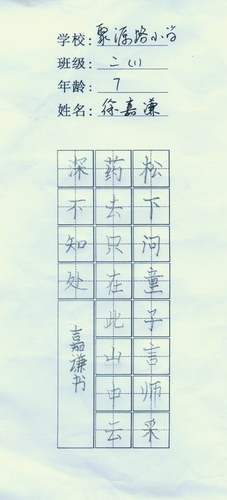 学校：聚源路小学
班级：二（1）
年龄：7
姓名：徐嘉谦
松下问童子言师采
药去只在此山中云
深不知处
嘉谦书